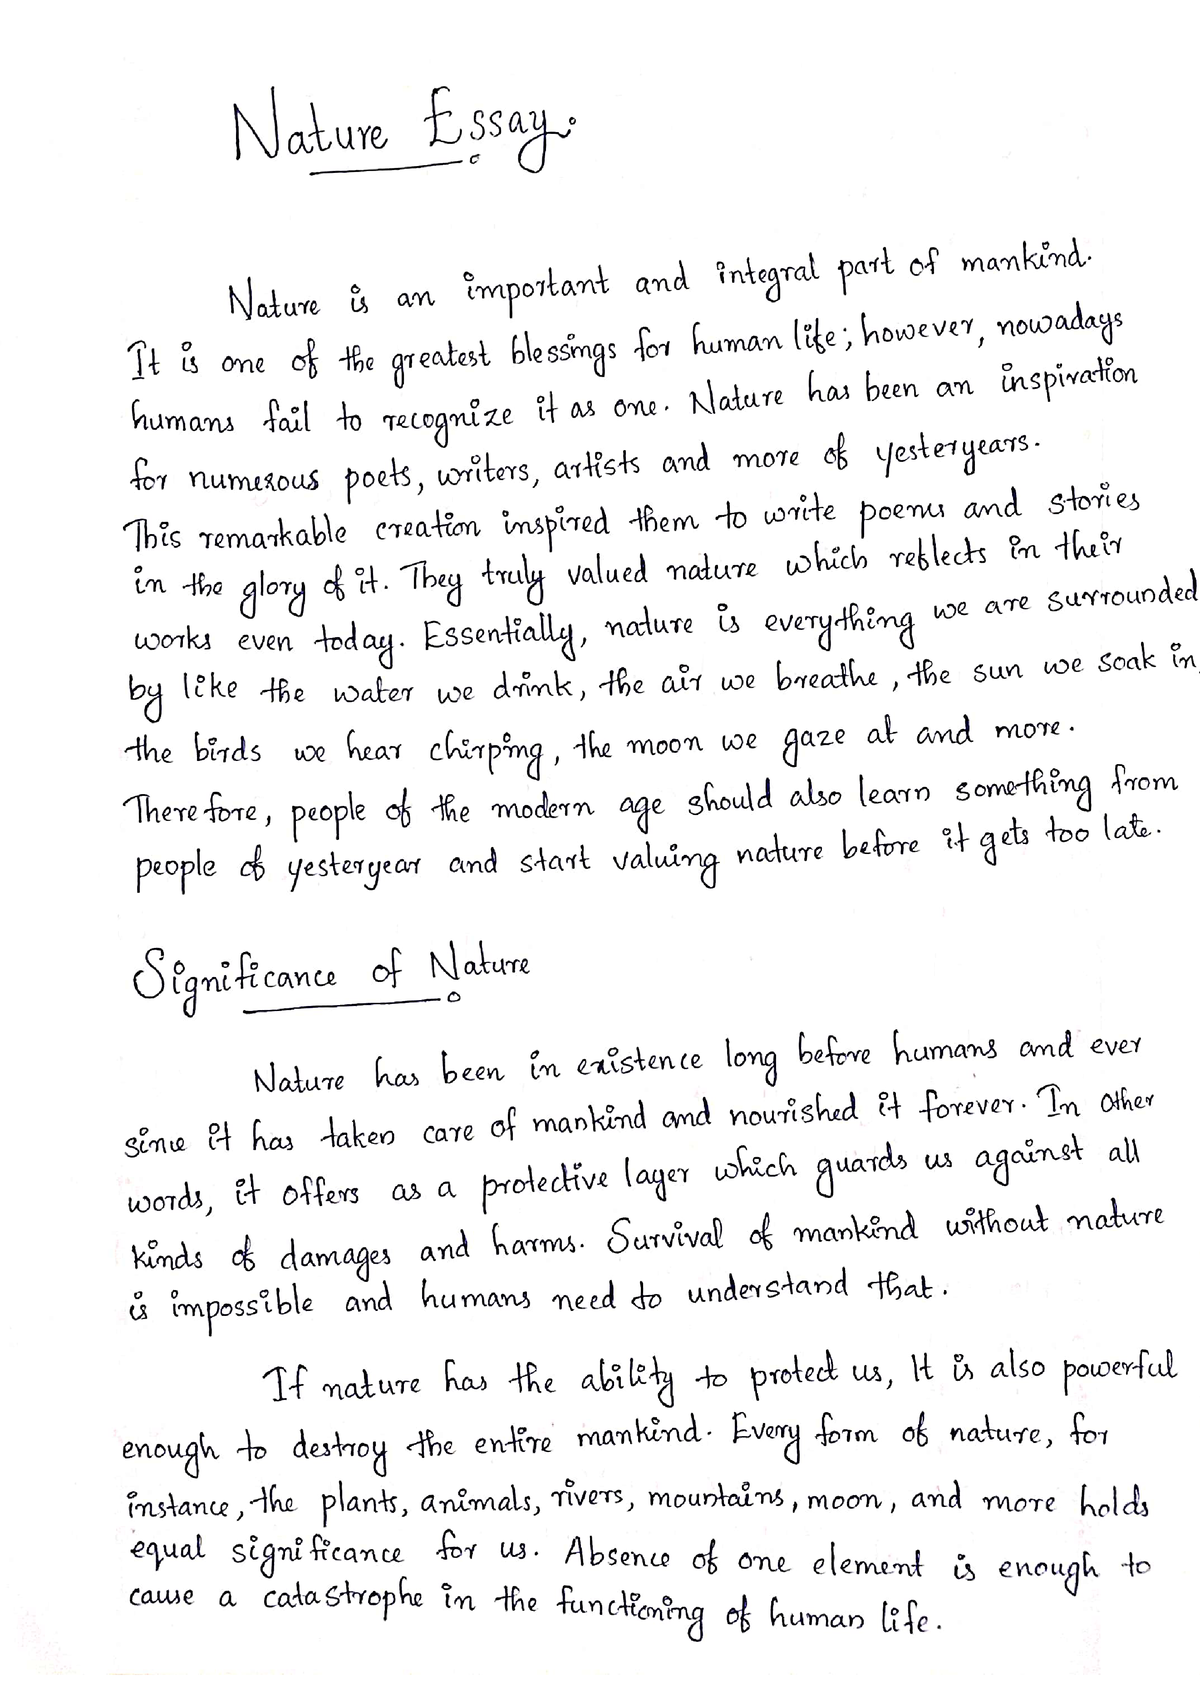 Nature Essay.
Nature is an important and integral part of mankind.
It is one of the greatest blessings for human life; however, nowadays
humans fail to recognize it as one. Nature has been an inspiration
for numerous poets, writers, artists and more of yesteryears.
This remarkable creation inspired them to write poems and stories
in the glory of it. They truly valued nature which reflects in their
works even today. Essentially, nature is everything we are surrounded
by like the water we drink, the air we breathe, the sun we soak in,
the birds we hear chirping, the moon we gaze at and more.
Therefore, people of the modern age should also learn something from
people of yesteryear and start valuing nature before it gets too late.
Significance of Nature
Nature has been in existence long before humans and ever
since it has taken care of mankind and nourished it forever. In other
words, it offers as a protective layer which guards us against all
kinds of damages and harms. Survival of mankind without nature
is impossible and humans need to understand that.
If nature has the ability to protect us, It is also powerful
enough to destroy the entire mankind. Every form of nature, for
instance, the plants, animals, rivers, mountains, moon, and more holds
equal significance for us. Absence of one element is enough to
cause a catastrophe in the functioning of human life.